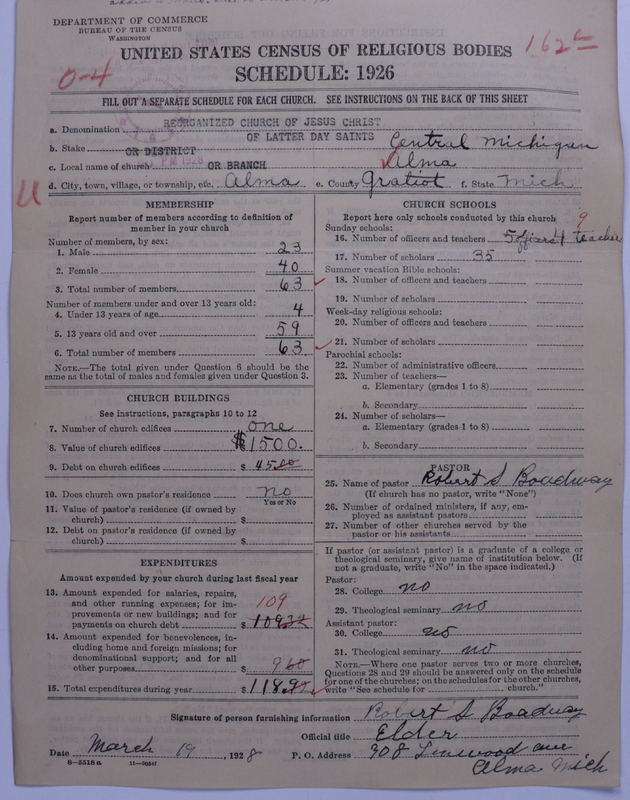 DEPARTMENT OF COMMERCE
BUREAU OF THE CENSUS
WASHINGTON
UNITED STATES CENSUS OF RELIGIOUS BODIES
SCHEDULE: 1926
0-4
FILL OUT A SEPARATE SCHEDULE FOR EACH CHURCH. SEE INSTRUCTIONS ON THE BACK OF THIS SHEET
a. Denomination REORGANIZED CHURCH OF JESUS CHRIST
OF LATTER DAY SAINTS
b. Stake OR DISTRICT Central Michigan
c. Local name of church OR BRANCH Alma
d. City, town, village, or township, etc. Alma e. County Gratiot f. State Mich
MEMBERSHIP
Report number of members according to definition of
member in your church
Number of members, by sex:
1. Male 23
2. Female 40
3. Total number of members 63
Number of members under and over 13 years old:
4. Under 13 years of age 4
5. 13 years old and over 59
6. Total number of members 63
NOTE.—The total given under Question 6 should be
same as the total of males and females given under Question 3.
CHURCH BUILDINGS
See instructions, paragraphs 10 to 12
7. Number of church edifices one
8. Value of church edifices $1500.
9. Debt on church edifices $ 45.00
10. Does church own pastor's residence no
Yes or No
11. Value of pastor's residence (if owned by
church) $
12. Debt on pastor's residence (if owned by
church) $
EXPENDITURES
Amount expended by your church during last fiscal year
13. Amount expended for salaries, repairs,
and other running expenses; for im-
provements or new buildings; and for
payments on church debt 109 $ 109
14. Amount expended for benevolences, in-
cluding home and foreign missions; for
denominational support; and for all
other purposes $ 9
15. Total expenditures during year $ 118
CHURCH SCHOOLS
Report here only schools conducted by this church
Sunday schools: 9
16. Number of officers and teachers 5 officers 4 teachers
17. Number of scholars 35
Summer vacation Bible schools:
18. Number of officers and teachers
19. Number of scholars
Week-day religious schools:
20. Number of officers and teachers
21. Number of scholars
Parochial schools:
22. Number of administrative officers
23. Number of teachers—
a. Elementary (grades 1 to 8)
b. Secondary
24. Number of scholars—
a. Elementary (grades 1 to 8)
b. Secondary
PASTOR
25. Name of pastor Robert S Boadway
(If church has no pastor, write "None")
26. Number of ordained ministers, if any, em-
ployed as assistant pastors
27. Number of other churches served by the
pastor or his assistants
If pastor (or assistant pastor) is a graduate of a college or
theological seminary, give name of institution below. (If
not a graduate, write "No" in the space indicated.)
Pastor:
28. College no
29. Theological seminary no
Assistant pastor:
30. College no
31. Theological seminary no
NOTE.—Where one pastor serves two or more churches,
Questions 28 and 29 should be answered only on the schedule
for one of the churches; on the schedules for the other churches,
write "See schedule for church."
Signature of person furnishing information Robert S Boadway
Official title Elder
Date March 19, 1928 P. O. Address 908 Linwood ave
Alma Mich
8-5518 a